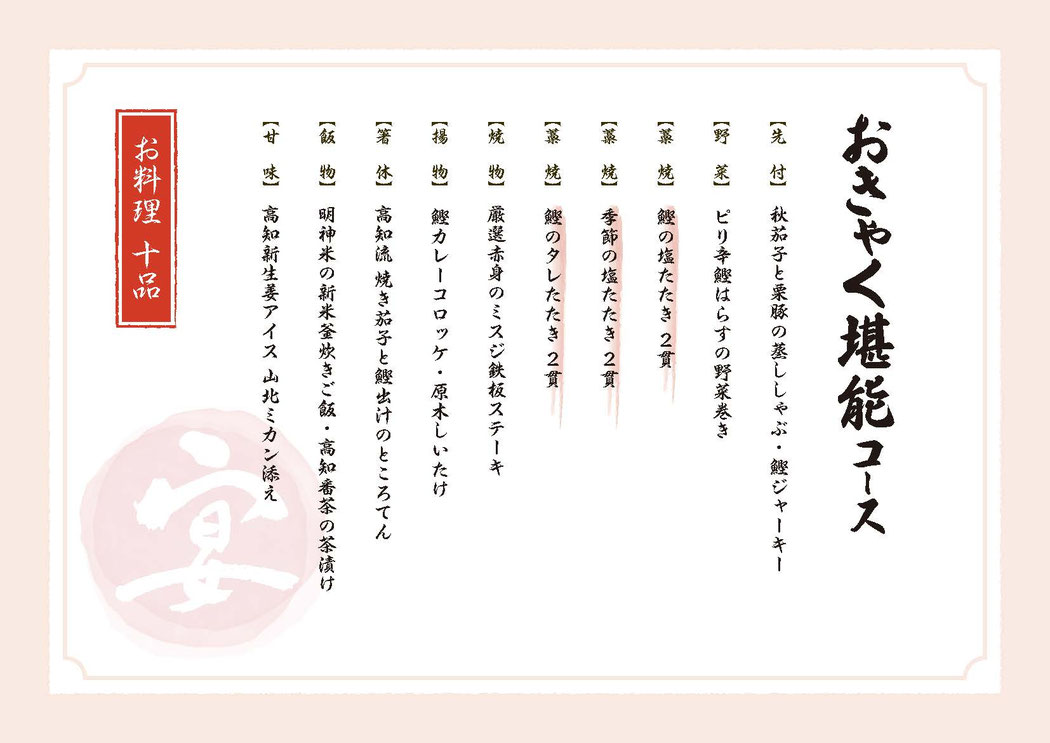 おきゃく堪能コース
【先付】秋茄子と栗豚の蒸ししゃぶ・鰹ジャーキー
【野菜】ピリ辛鰹はらすの野菜巻き
【藁焼】鰹の塩たたき ２貫
【藁焼】季節の塩たたき ２貫
【藁焼】鰹のタレたたき ２貫
【焼物】厳選赤身のミスジ鉄板ステーキ
【揚物】鰹カレーコロッケ・原木しいたけ
【箸休】高知流 焼き茄子と鰹出汁のところてん
【飯物】明神米の新米釜炊きご飯・高知番茶の茶漬け
【甘味】高知新生姜アイス 山北ミカン添え
お料理 十品
宴